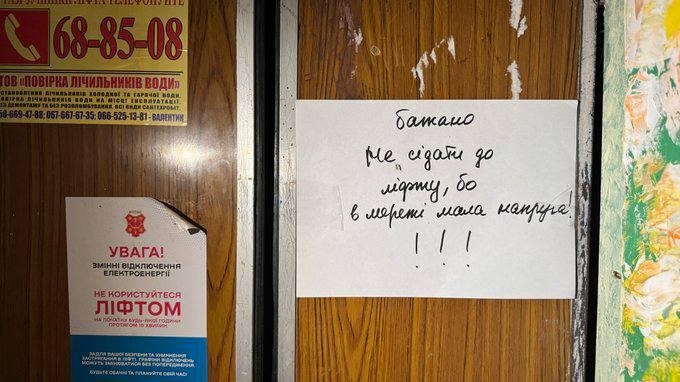 68-85-08
ТОВ «ПОВІРКА ЛІЧИЛЬНИКІВ ВОДИ»
ВСТАНОВЛЕННЯ ЛІЧИЛЬНИКІВ ХОЛОДНОЇ ТА ГАРЯЧОЇ ВОДИ.
ПОВІРКА ЛІЧИЛЬНИКІВ ВОДИ НА МІСЦІ ЕКСПЛУАТАЦІЇ,
БЕЗ ДЕМОНТАЖУ ТА БЕЗ РОЗПЛОМБУВАННЯ. ВСІ ВИДИ САНТЕХРОБІТ.
50-669-47-88; 067-667-67-35; 066-525-13-81 - ВАЛЕНТИН
УВАГА!
ЗМІННІ ВІДКЛЮЧЕННЯ
ЕЛЕКТРОЕНЕРГІЇ
НЕ КОРИСТУЙТЕСЯ
ЛІФТОМ
НА ПОЧАТКУ БУДЬ-ЯКОЇ ГОДИНИ
ПРОТЯГОМ 10 ХВИЛИН
ЗАДЛЯ ВАШОЇ БЕЗПЕКИ ТА УНИКНЕННЯ
ЗАСТРЯГАННЯ В ЛІФТІ. ГРАФІКИ ВІДКЛЮЧЕНЬ
МОЖУТЬ ЗМІНЮВАТИСЯ БЕЗ ПОПЕРЕДЖЕННЯ.
БУДЬТЕ ОБАЧНІ ТА ПЛАНУЙТЕ СВІЙ ЧАС!
бажано
Не сідати до
ліфту, бо
в мережі мала напруга!
! ! !